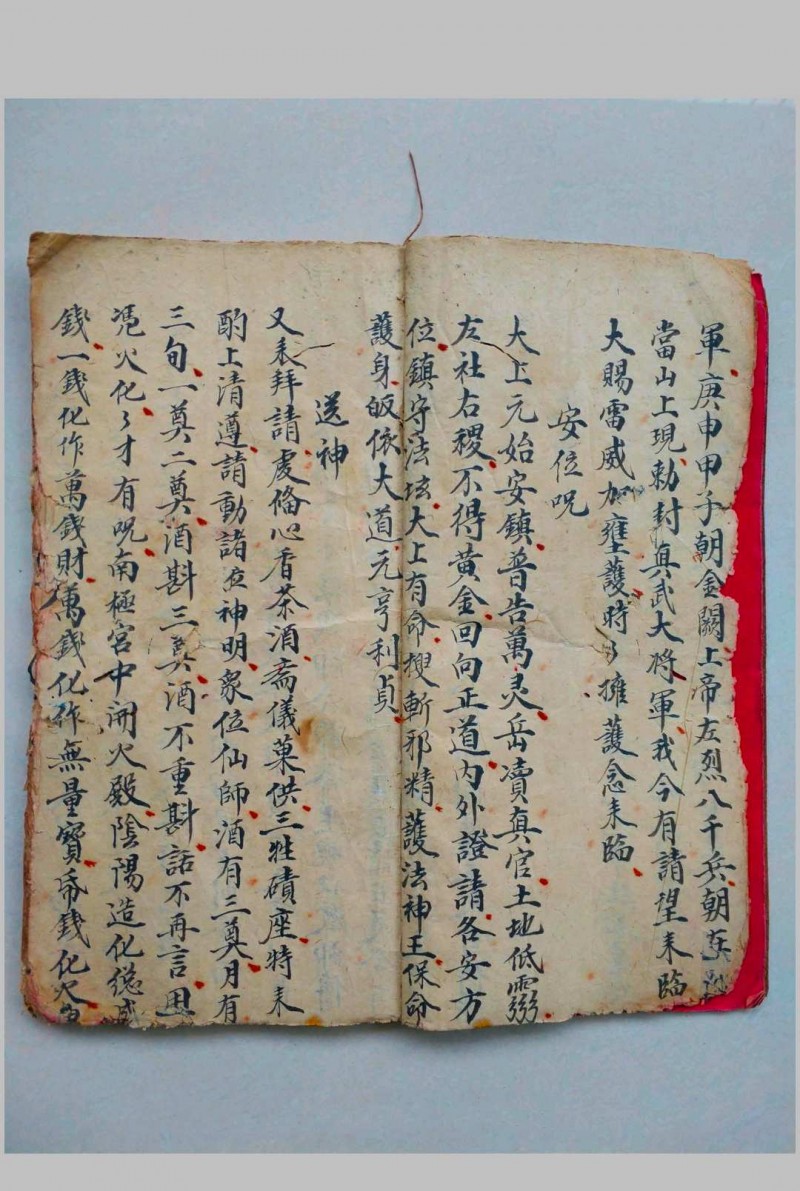 軍庚申甲子朝金闕上帝左烈八千兵朝
當山上現勅封真武大将軍我今有請望来臨
大賜雷威加壅護時〻擁護念来臨
安位呪
大上元始安鎮普告萬灵岳瀆真官土地低
左社右稷不得黄金回向正道内外證請各安方
位鎮守法坛大上有命搜斬邪精護法神王保命
護身皈依大道元亨利貞
送神
又来拜請虔俻心香茶酒斋儀菓供三牲碛座特来
酌上清遵請動諸位神明衆位仙師酒有三奠月有
三旬一奠二奠酒斟三奠酒不重斟話不再言
凴火化〻才有呪南極宮中開火殿陰陽造化
錢一錢化作萬錢財萬錢化作無量寳帋錢化火